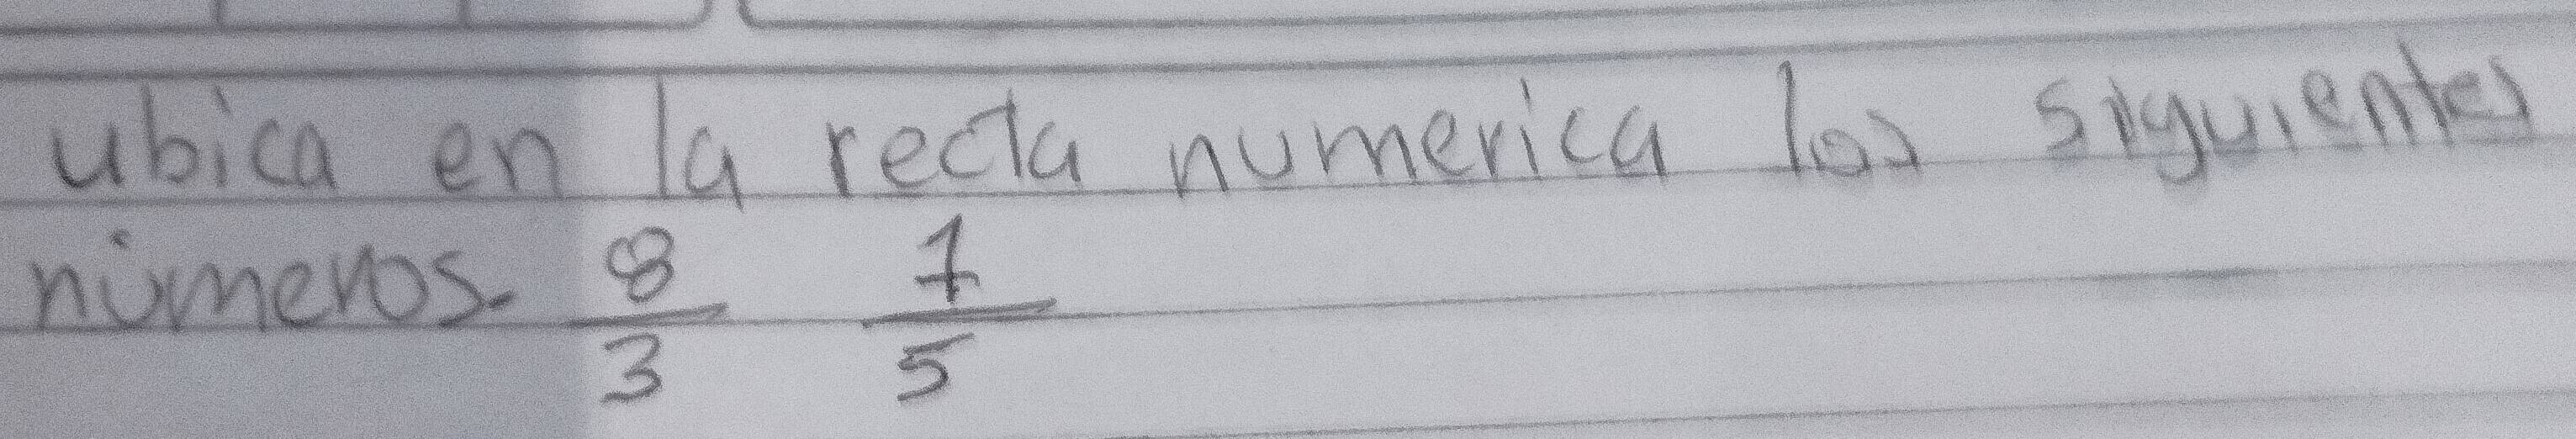 ubica en la recta numerica los siguientes
números. 8/3 7/5